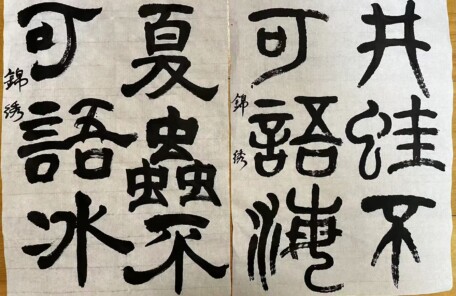 井蛙不
可語海
錦綉
夏蟲不
可語冰
錦綉